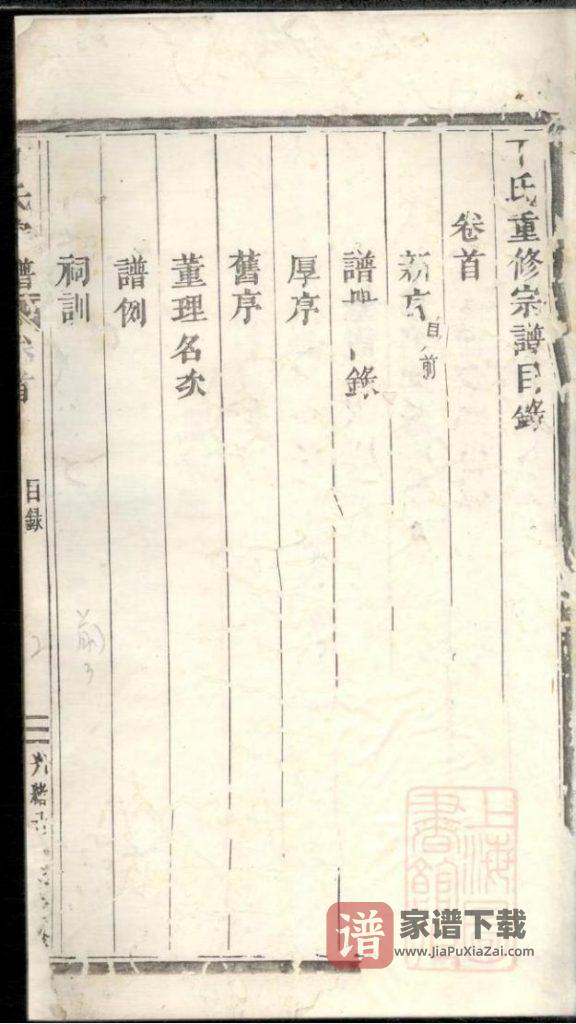 丁氏重修宗譜目錄
卷首
新序
自前
譜目錄
厚序
舊序
董理名次
譜例
祠訓
氏宗譜 卷首
目錄
2
前
3
光緒
上海圖書館
谱 家谱下载
www.JiaPuXiaZai.com